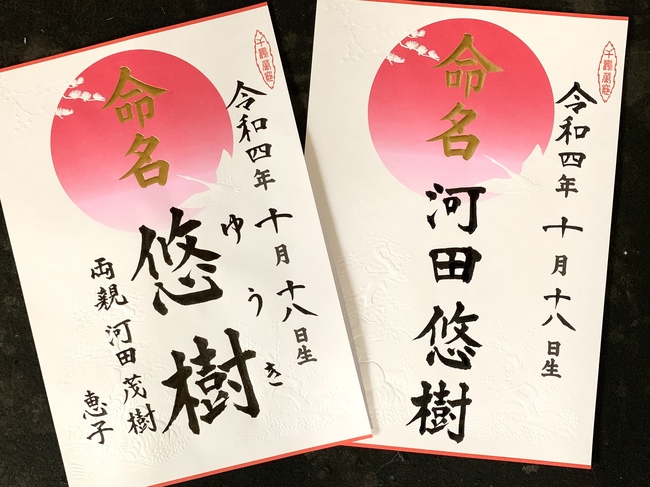 命名
令和四年 十月十八日生
ゆうき
悠樹
両親 河田茂樹
恵子
命名
令和四年 十月十八日生
河田悠樹